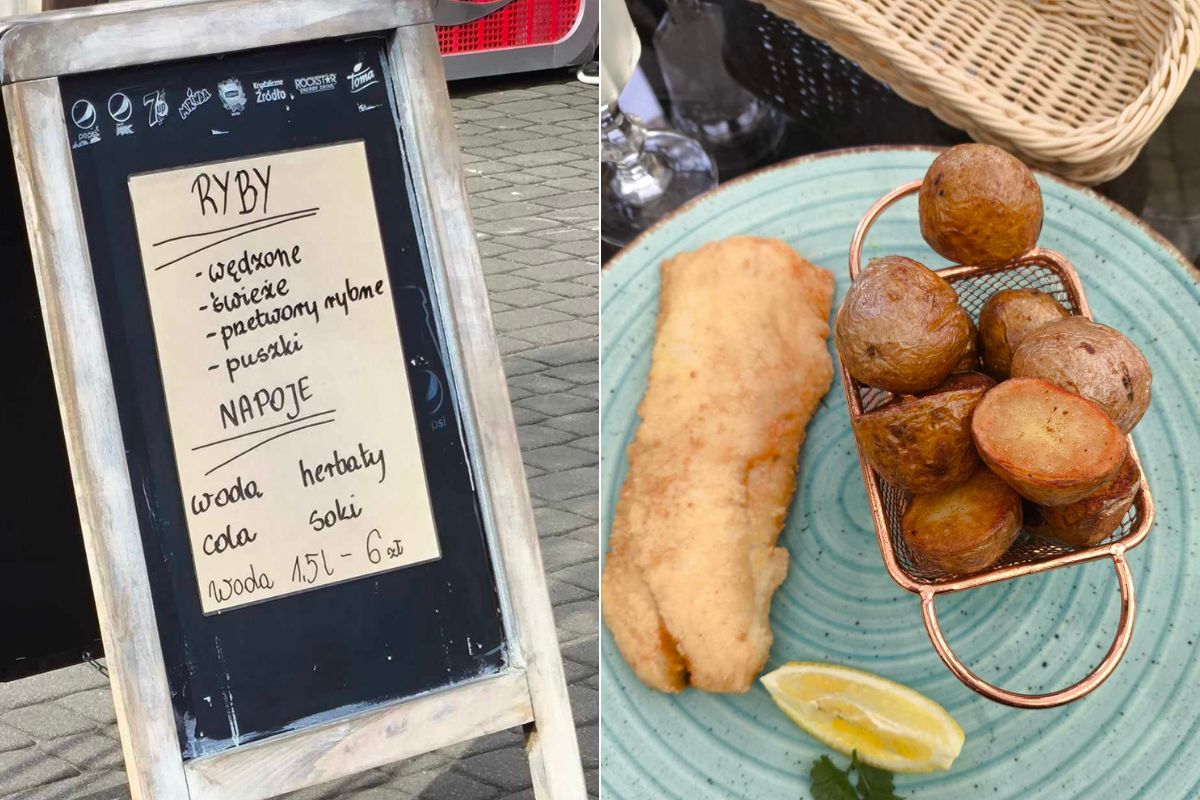 pepsi
pepsi
MAX
7UP
MIRINDA
Krystaliczne
Źródło
ROCKSTAR
ENERGY DRINK
Toma
RYBY
- wędzone
- świeże
- przetwory rybne
- puszki
NAPOJE
woda herbaty
cola soki
woda 1,5l - 6 zł
psi